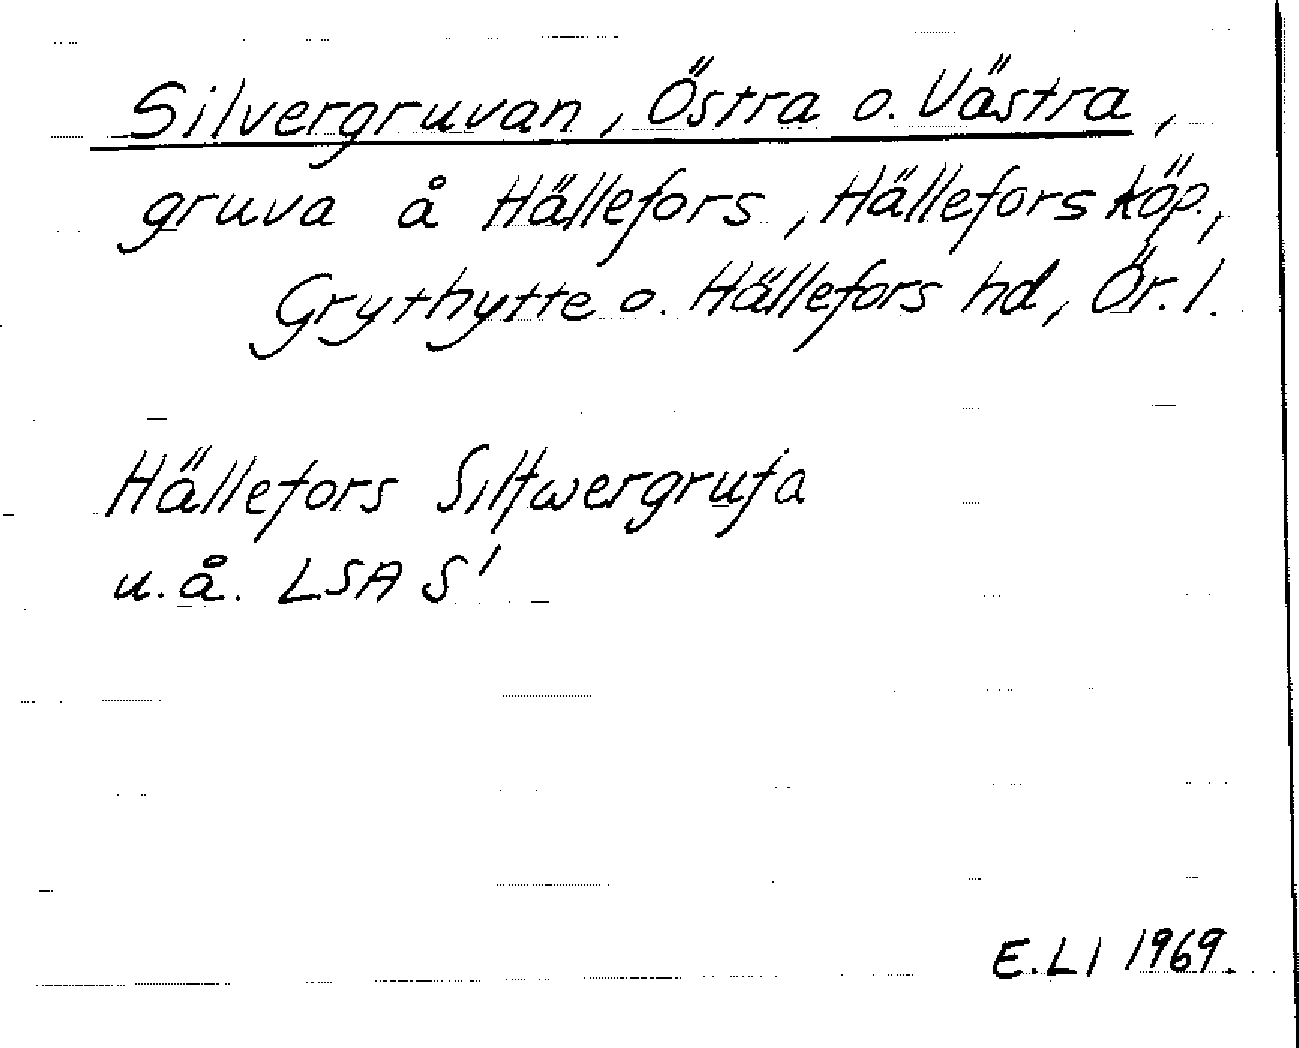 Silvergruvan, Östra o. Västra,
gruva å Hällefors, Hällefors köp.,
Grythytte o. Hällefors hd, Ör. l.
Hällefors Silfwergrufa
u.å. LSA S'
E.Ll 1969.